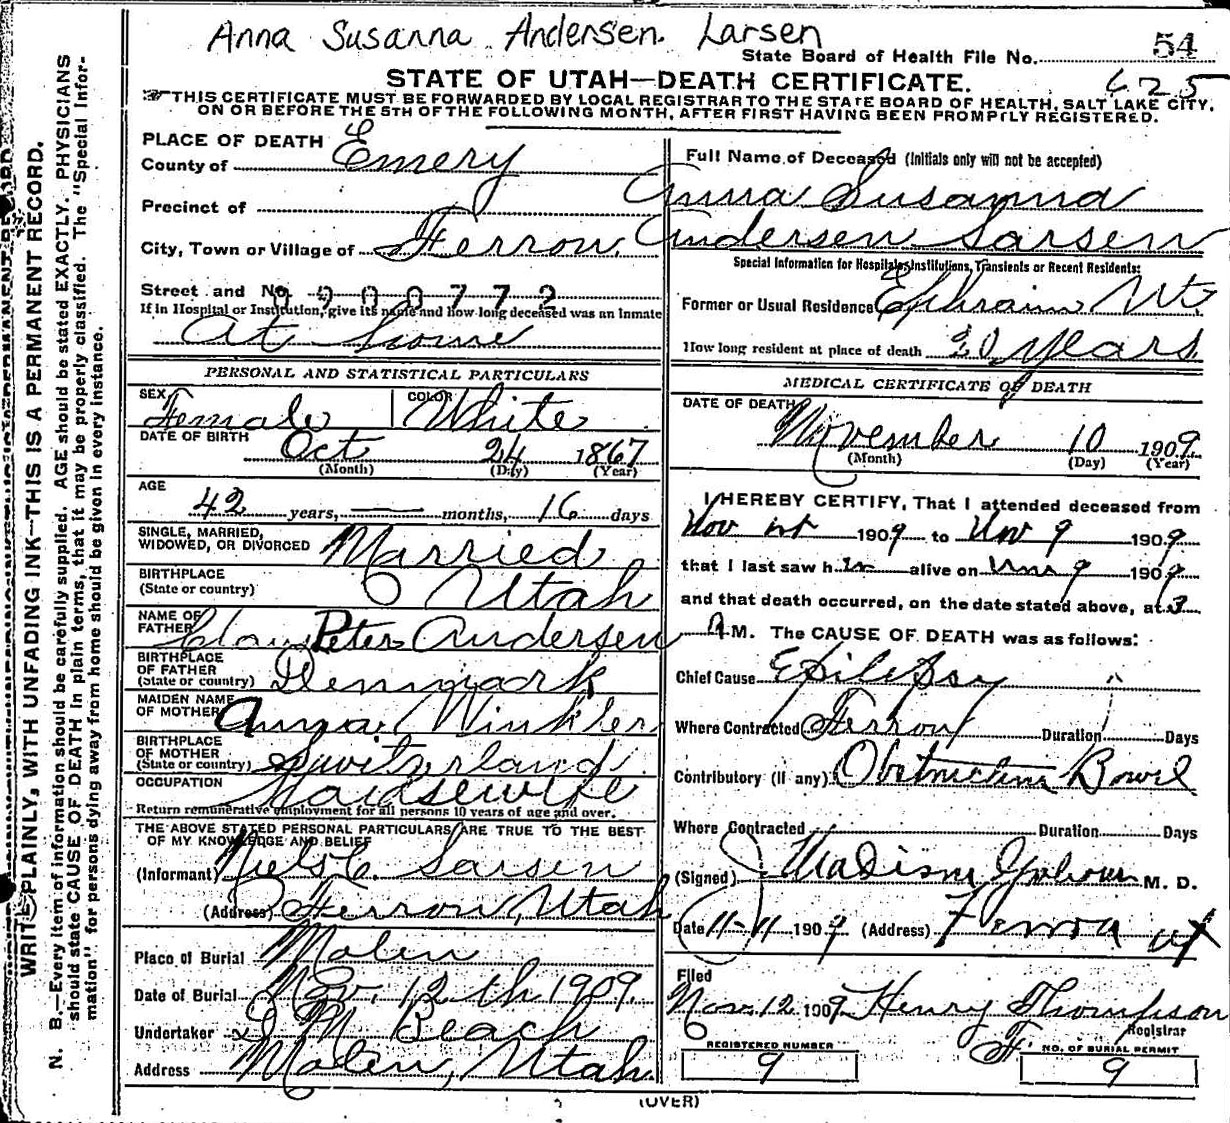 Anna Susanna Andersen Larsen
State Board of Health File No. 54
STATE OF UTAH—DEATH CERTIFICATE. 625
THIS CERTIFICATE MUST BE FORWARDED BY LOCAL REGISTRAR TO THE STATE BOARD OF HEALTH, SALT LAKE CITY,
ON OR BEFORE THE 5TH OF THE FOLLOWING MONTH, AFTER FIRST HAVING BEEN PROMPTLY REGISTERED.
WRITE PLAINLY, WITH UNFADING INK—THIS IS A PERMANENT RECORD.
N. B.—Every item of information should be carefully supplied. AGE should be stated EXACTLY. PHYSICIANS
should state CAUSE OF DEATH in plain terms, that it may be properly classified. The "Special Infor-
mation" for persons dying away from home should be given in every instance.
PLACE OF DEATH
County of Emery
Precinct of
City, Town or Village of Ferron.
Street and No. 0900772
If in Hospital or Institution, give its name and how long deceased was an inmate
At home
PERSONAL AND STATISTICAL PARTICULARS
SEX Female COLOR White
DATE OF BIRTH Oct 24 1867
(Month) (Day) (Year)
AGE
42 years, — months, 16 days
SINGLE, MARRIED,
WIDOWED, OR DIVORCED Married
BIRTHPLACE
(State or country) Utah
NAME OF
FATHER Peter Andersen
BIRTHPLACE
OF FATHER
(State or country) Denmark
MAIDEN NAME
OF MOTHER Anna Winkler
BIRTHPLACE
OF MOTHER
(State or country) Switzerland
OCCUPATION Housewife
Return remunerative employment for all persons 10 years of age and over.
THE ABOVE STATED PERSONAL PARTICULARS ARE TRUE TO THE BEST
OF MY KNOWLEDGE AND BELIEF
(Informant) Niels C. Larsen
(Address) Ferron, Utah
Place of Burial Molen
Date of Burial Nov. 12th 1909.
Undertaker M Beach
Address Molen, Utah
Full Name of Deceased (Initials only will not be accepted)
Anna Susanna
Andersen Larsen
Special Information for Hospitals, Institutions, Transients or Recent Residents:
Former or Usual Residence Ephraim Ut.
How long resident at place of death 20 years
MEDICAL CERTIFICATE OF DEATH
DATE OF DEATH
November 10 1909
(Month) (Day) (Year)
I HEREBY CERTIFY, That I attended deceased from
Nov 1st 1909 to Nov 9 1909
that I last saw her alive on Nov 9 1909
and that death occurred, on the date stated above, at 3
A M. The CAUSE OF DEATH was as follows:
Chief Cause Epilepsy
Where Contracted Ferron Duration Days
Contributory (If any) Obstruction Bowel
Where Contracted Duration Days
(Signed) M. D.
Date 11-11 1909 (Address) Ferron Ut
Filed
Nov. 12 1909 Henry Thompson
Registrar
REGISTERED NUMBER
9
NO. OF BURIAL PERMIT
9
(OVER)